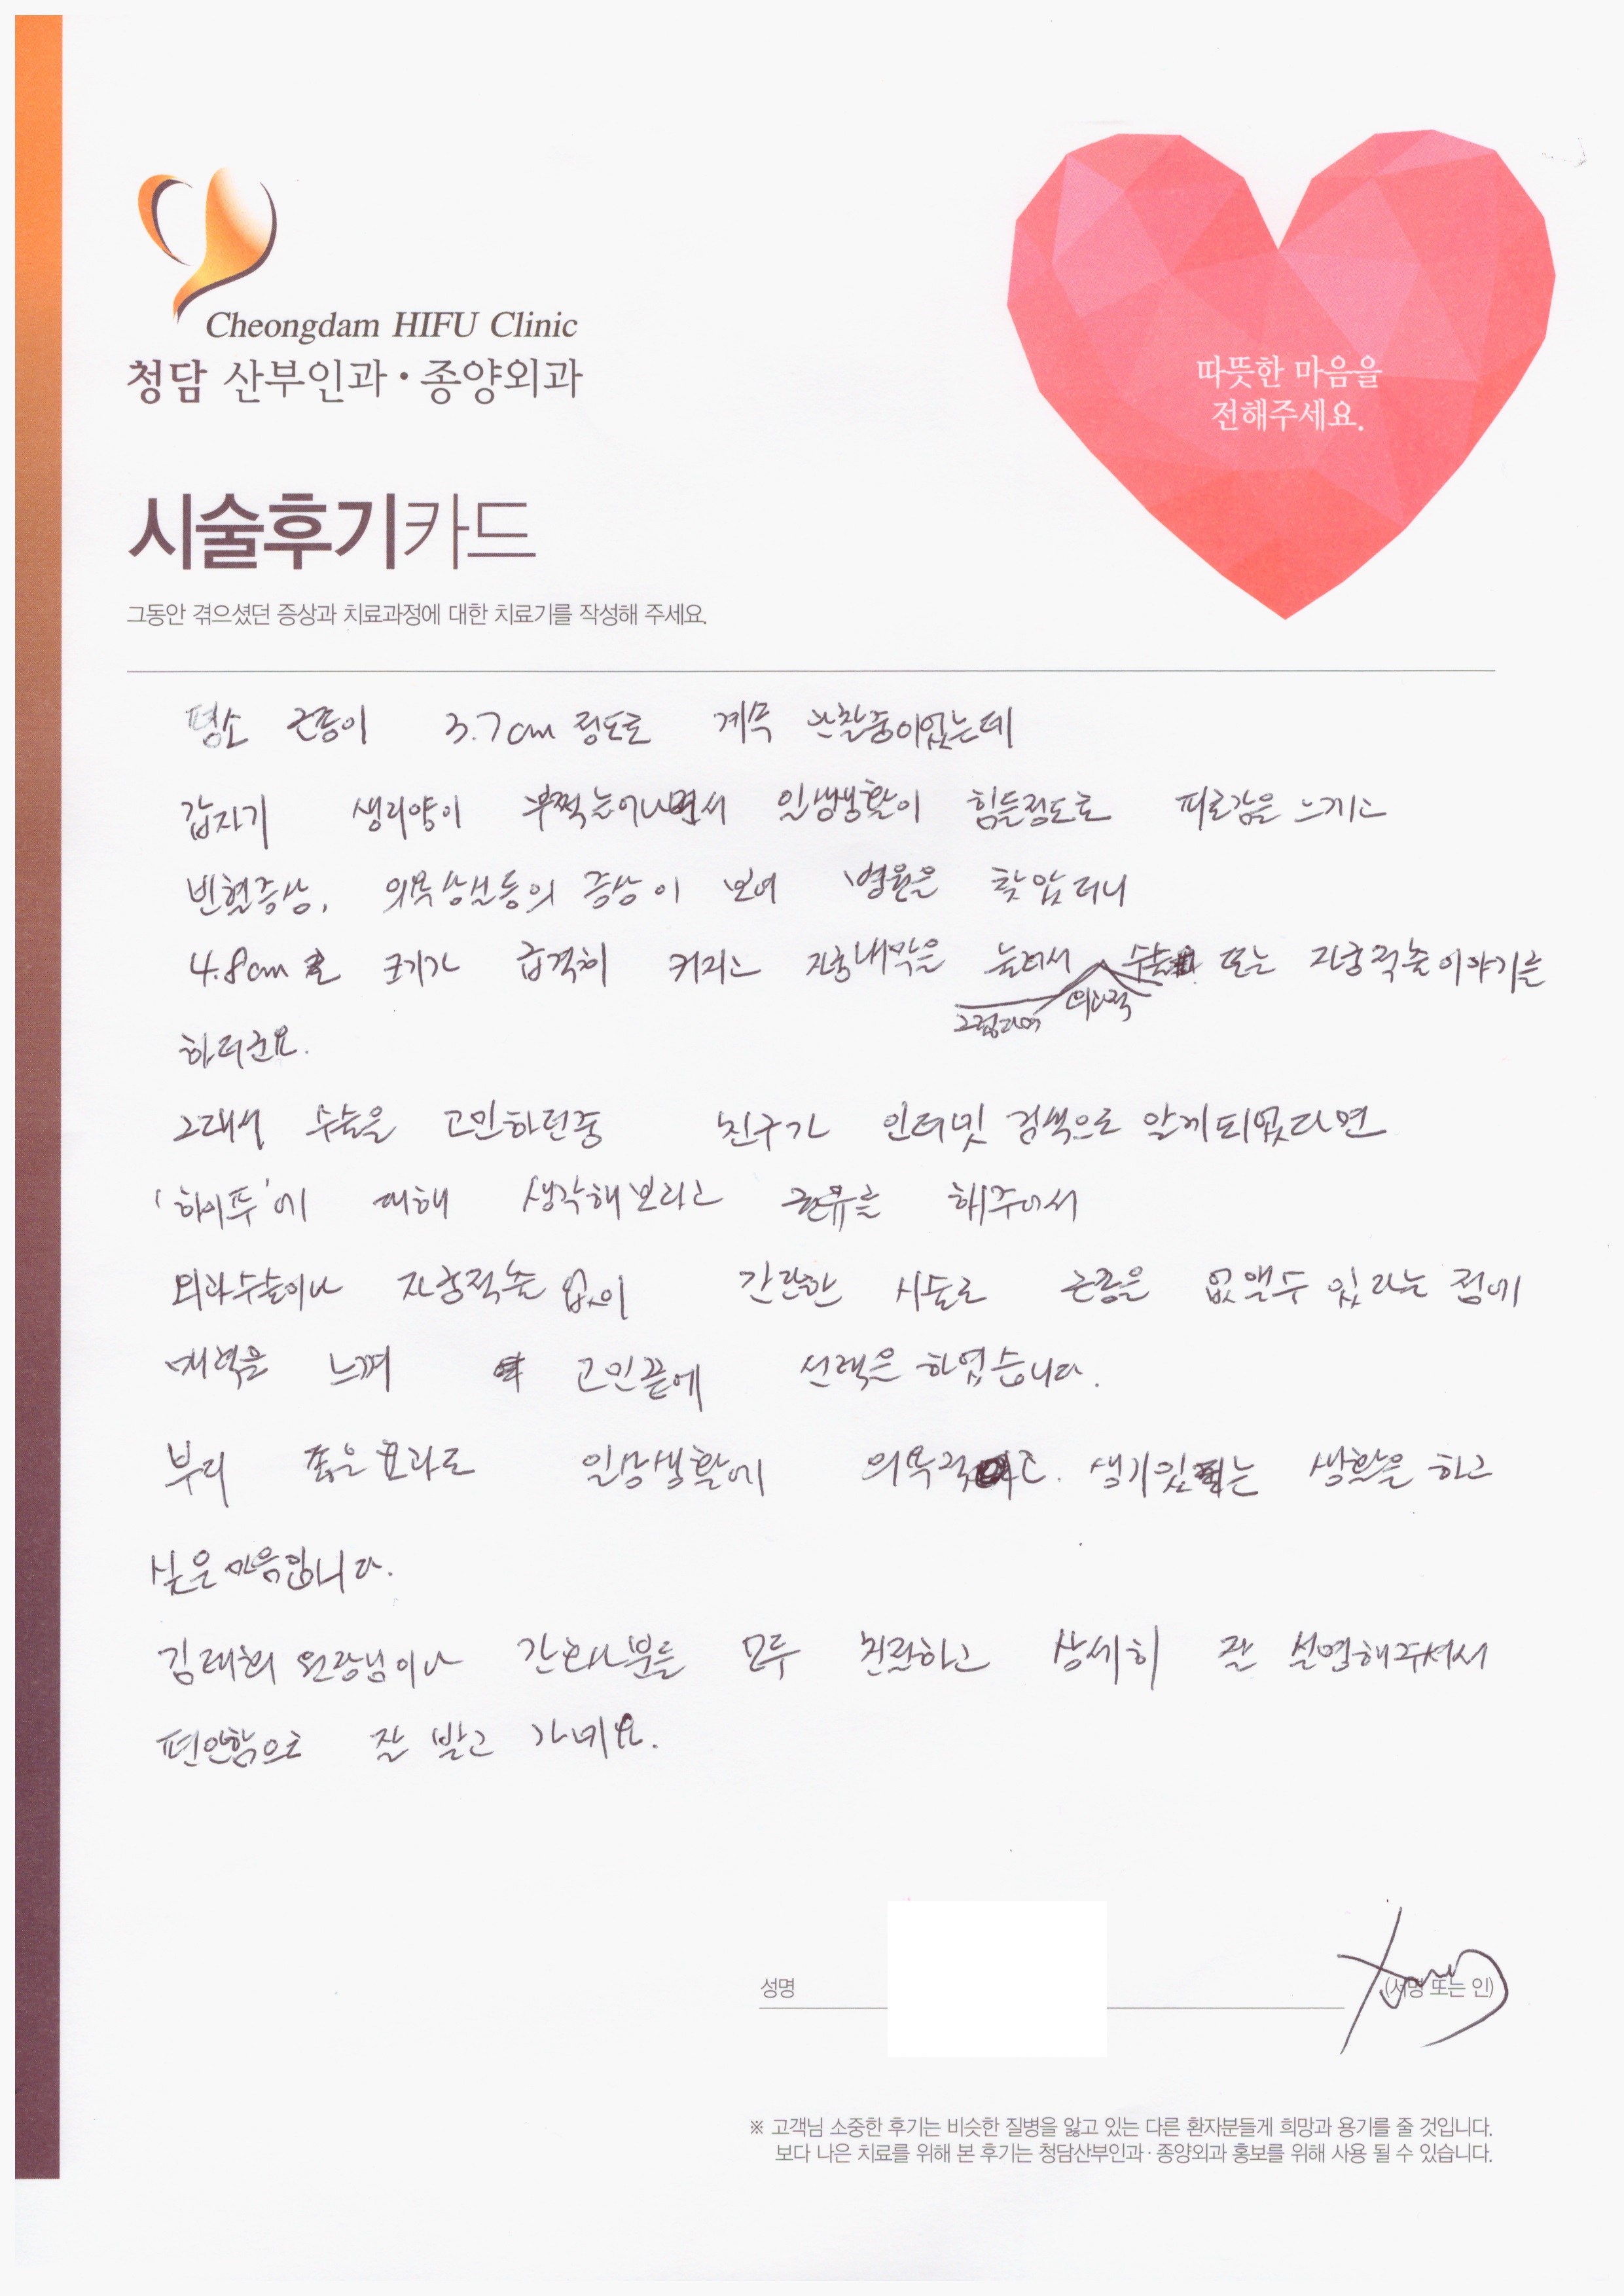 Cheongdam HIFU Clinic
청담 산부인과·종양외과
따뜻한 마음을
전해주세요.
시술후기카드
그동안 겪으셨던 증상과 치료과정에 대한 치료기를 작성해 주세요.
평소 근종이 3.7cm 정도로 계속 관찰중이었는데
갑자기 생리양이 부쩍 늘어나면서 일상생활이 힘들정도로 피로감을 느끼고
빈혈증상, 의욕상실등의 증상이 보여 병원을 찾았더니
4.8cm로 크기가 급격히 커지고 자궁내막을 눌러서 수술 또는 자궁적출이야기를
그렇다며 외과적
하더군요.
그래서 수술을 고민하던중 친구가 인터넷 검색으로 알게되었다면
'하이푸'에 대해 생각해보라고 권유를 해주어서
외과수술이나 자궁적출 없이 간단한 시술로 근종을 없앨수 있다는 점에
매력을 느껴 고민끝에 선택을 하였습니다.
부디 좋은효과로 일상생활에 의욕적이고. 생기있는 생활을 하고
싶은 마음입니다.
김태희 원장님이나 간호사분들 모두 친절하고 상세히 잘 설명해주셔서
편안함으로 잘 받고 가네요.
성명 (서명 또는 인)
※ 고객님 소중한 후기는 비슷한 질병을 앓고 있는 다른 환자분들게 희망과 용기를 줄 것입니다.
보다 나은 치료를 위해 본 후기는 청담산부인과·종양외과 홍보를 위해 사용 될 수 있습니다.